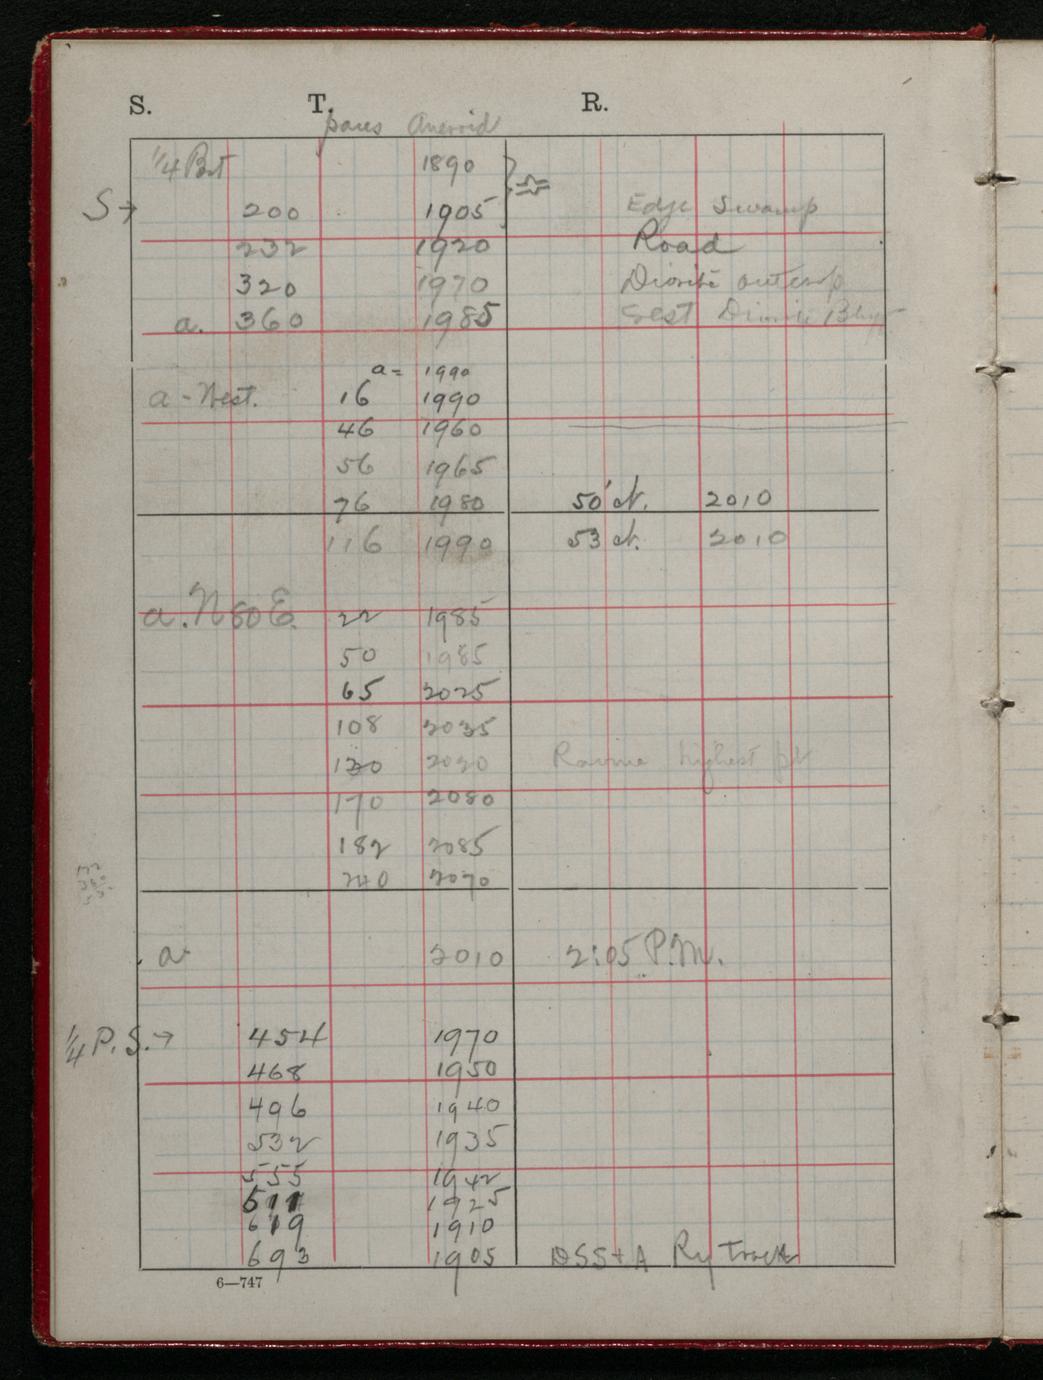 S. T. R.
paces Aneroid
1/4 Post 1890
S→ 200 1905 Edge Swamp
232 1920 Road
320 1970 Diorite outcrop
a. 360 1985 Gest Diorite
a = 1990
a - West. 16 1990
46 1960
56 1965
76 1980 50' N. 2010
116 1990 53 N. 2010
a. N 80 E. 22 1985
50 1985
65 2025
108 2035
130 2020 Ravine highest pt
170 2080
182 2085
240 2070
a 2010 2:05 P.M.
1/4 P. S.→ 454 1970
468 1950
496 1940
532 1935
555 1942
611 1925
619 1910
693 1905 DSS+A Ry Track
6—747